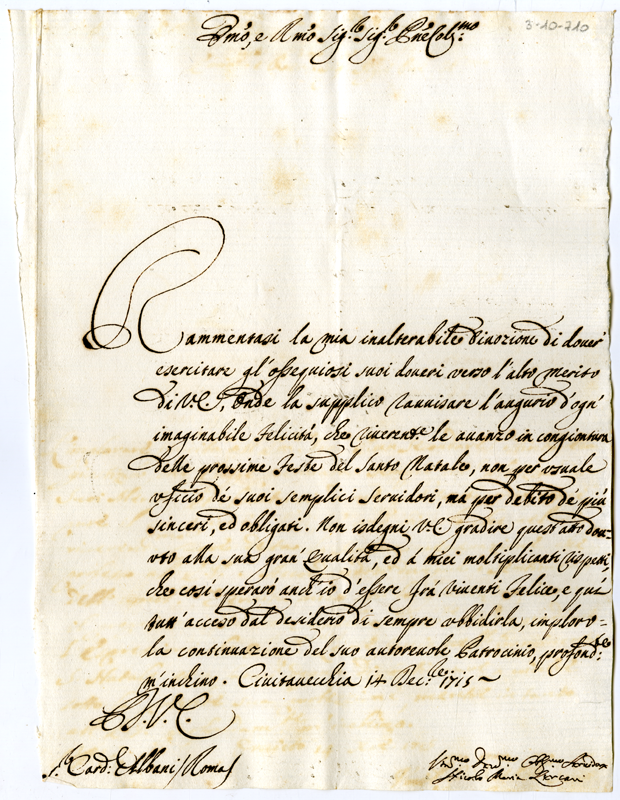 3-10-210
Emo, e Rmo Sig.r Sig.r Pne Col.mo
Rammentasi la mia inalterabile divozione di dover
esercitare gl'ossequiosi suoi doveri verso l'alto merito
di V.E, onde la supplico ravvisare l'augurio d'ogn'
imaginabile felicità, che riverent.e le avanzo in congiontura
delle prossime feste del Santo Natale, non per usuale
uficio dé suoi semplici servidori, mà per debito dé più
sinceri, ed obligati. Non isdegni V.E gradire quest'atto dov=
uto alla sua gran' qualità, ed á miei moltiplicanti rispetti,
che così sperarò anch'io d'essere frà viventi felice, e quì
tutt'acceso dal desiderio di sempre ubbidirla, imploro=
la continuazione del suo autorevole Patrocinio, profond.te
m'inchino. Civitavecchia 14 Dec.re 1715~
D.V.E.
S.r Card.l Albani / Roma /
Um.mo Dev.mo Obl.mo Servidore
Nicolò Maria